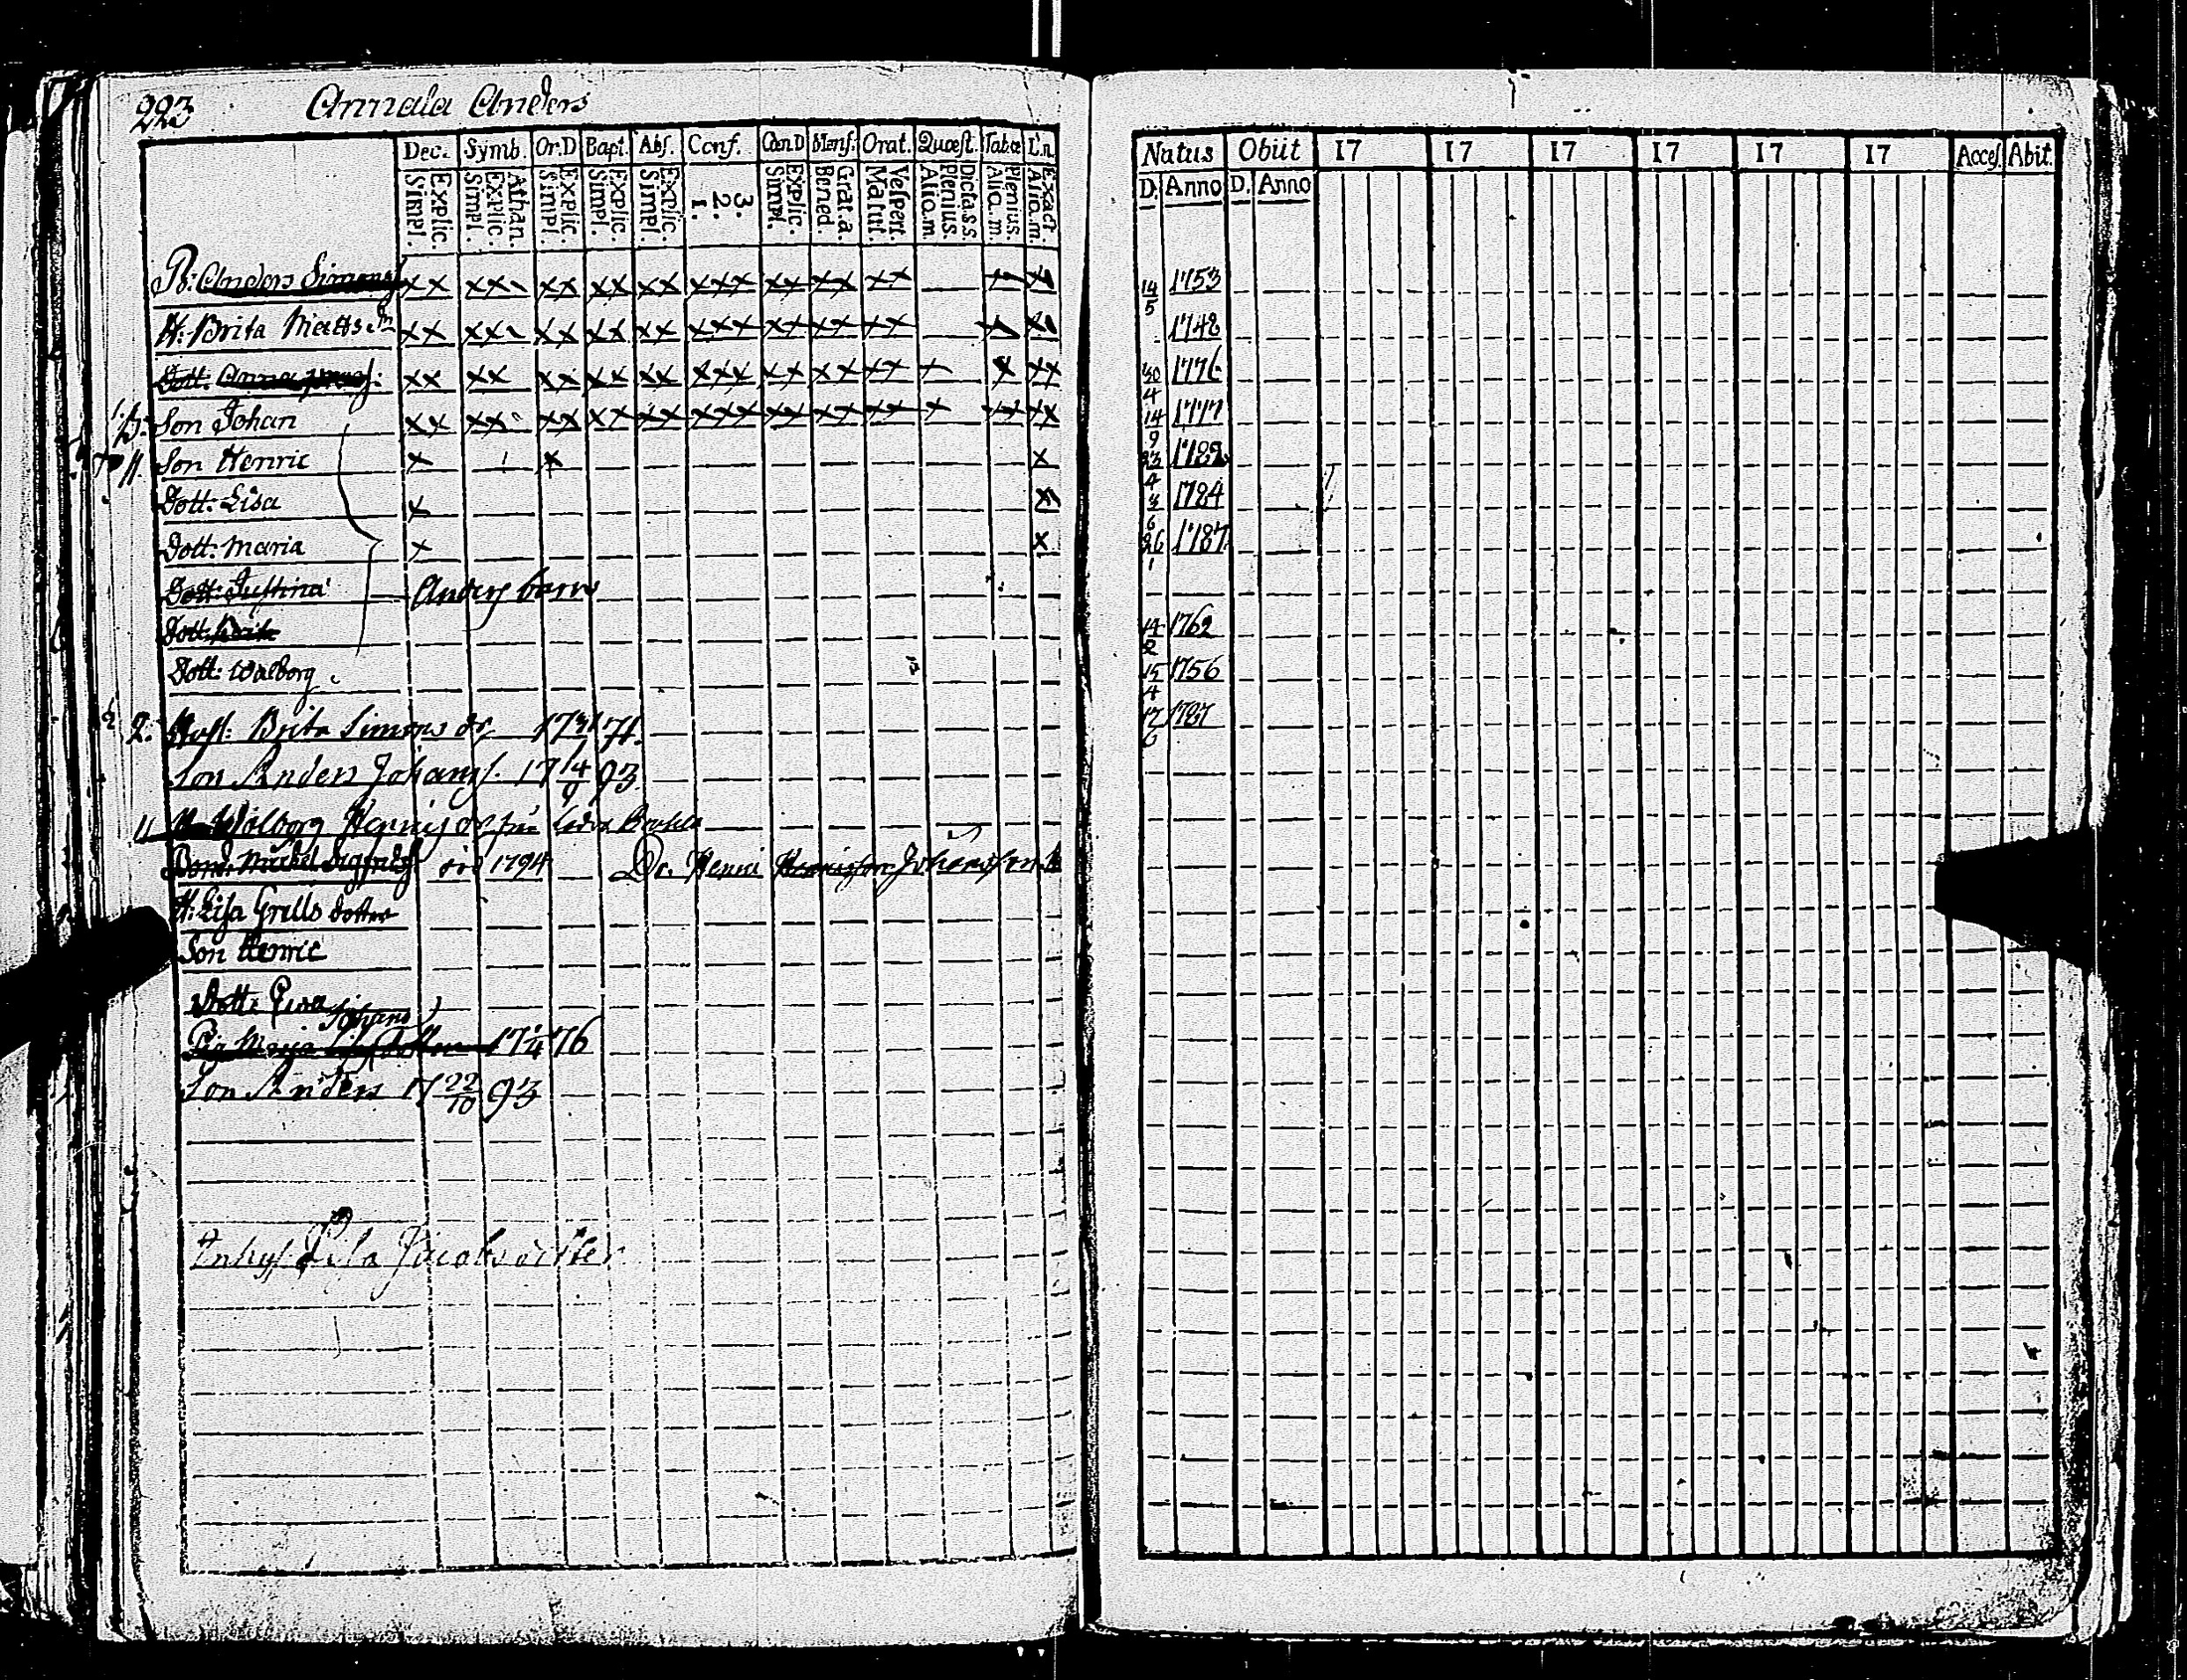 223 Annala Anders
Dec. Symb. Or.D Bapt. Abs. Conf. Cœn.D Mens. Orat. Quæst. Tabœ L.n.
Simpl. Explic. Simpl. Explic. Athan. Simpl. Explic. Simpl. Explic. Simpl. Explic. 1. 2. 3. Simpl. Explic. Bened. Grat.a. Matut. Vespert. Aliq.m. Plenius. Dicta.s.s. Aliq.m. Plenius. Aliq.m. Exact.
Natus Obiit 17 17 17 17 17 17 Access. Abit.
D. Anno D. Anno
B: Anders Simonss xx xx xx xx xx xxx xx xx xx 14/5 1753
H: Brita Matts Dr xx xx xx xx xx xxx xx xx xx 1748
Dott: Anna xx xx xx xx xx xxx xx xx xx x x xx 30/4 1776
Son Johan xx xx xx xx xx xxx xx xx xx x xx xx 14/9 1777
Son Henric x x x 23/4 1782
Dott: Lisa x x 3/6 1784
Dott: Maria x x 26/1 1787
Dott: Justina Anders barn
Dott: Brita 14/2 1762
Dott: Walborg 15/4 1756
2. Hust: Brita Simons dr 17 71. 17/6 1787
Son Anders Johanss. 17 14/9 93
Walborg Henrics dr
Bond. Michel Sigfrids 1794 Dr. Henric Johansson
H: Lisa Grells dotter
Son Henric
Dott: Ewa
Pig Maja Johans 17 76
Son Anders 17 22/10 93
Inhys Lisa Jacobsdotter